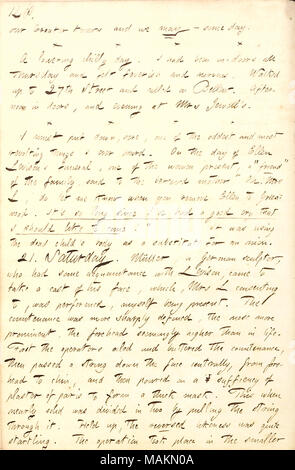 128.
our                    and we may — some day.
A lowering chilly day. I had been in-doors all
Thursday and felt feverish and nervous. Walked
up to 27th Street and called on Bellew. After-
noon in doors, and evening at Mrs Jewell's.
I must put down, here, one of the oddest and most
revolting things I ever heard. On the day of Ellen
Levison's funeral, one of the women present, a
of the family, said to the bereaved mother "Oh, Mrs
L, do let me know when you remove Ellen to Green-
wood. It's so long since I've had a good cry that
I should like to come!"             was using
the dead child's body as a             for an onion.
21. Saturday. Müller, a German sculptor,
who had some acquaintance with Levison, came to
take a cast of his face, which, Mrs L consenting
to, was performed, myself being present. The
countenance was more sharply defined, the nose more
prominent, the forehead seemingly higher than in life.
First the operators oiled and buttered the countenance,
then passed a string down the face centrally, from fore-
head to chin, and then poured on a sufficiency of
plaster of paris to form a thick mask. This when
nearly solid was divided in two by pulling the string
through it. Held up, the reversed likeness was quite
startling. The operation took place in the smaller
alamy
Image ID: MAKN0A
www.alamy.com